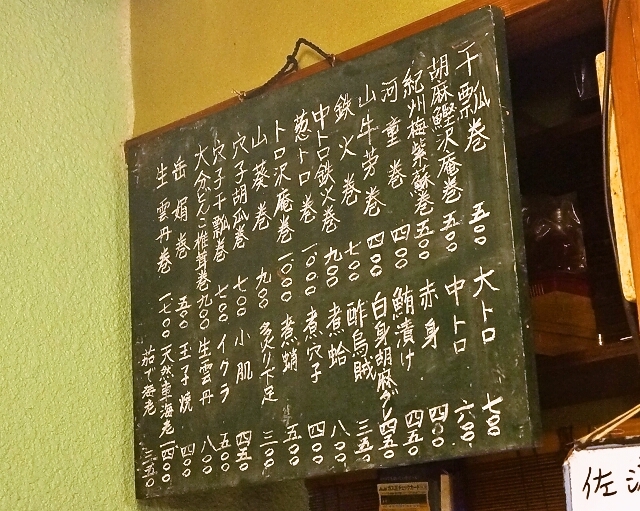 干瓢巻 五〇〇
胡麻鰹沢庵巻 五〇〇
紀州梅紫蘇巻 五〇〇
河童巻 四〇〇
山牛蒡巻 四〇〇
鉄火巻 七〇〇
中トロ鉄火巻 九〇〇
葱トロ巻 一〇〇〇
トロ沢庵巻 一〇〇〇
山葵巻 九〇〇
穴子胡瓜巻 七〇〇
穴子干瓢巻 七〇〇
大分どんこ椎茸巻 九〇〇
岳娟巻 五〇〇
生雲丹巻 一七〇〇
大トロ 七〇〇
中トロ 六〇〇
赤身 四〇〇
鮪漬け 四五〇
白身胡麻ダレ 四五〇
酢烏賊 三五〇
煮蛤 八〇〇
煮穴子 四〇〇
煮蛸 五〇〇
炙り下足 三〇〇
小肌 四五〇
イクラ 五〇〇
生雲丹 八〇〇
玉子焼 四〇〇
天然車海老 一四〇〇
茹で海老 三五〇
佐